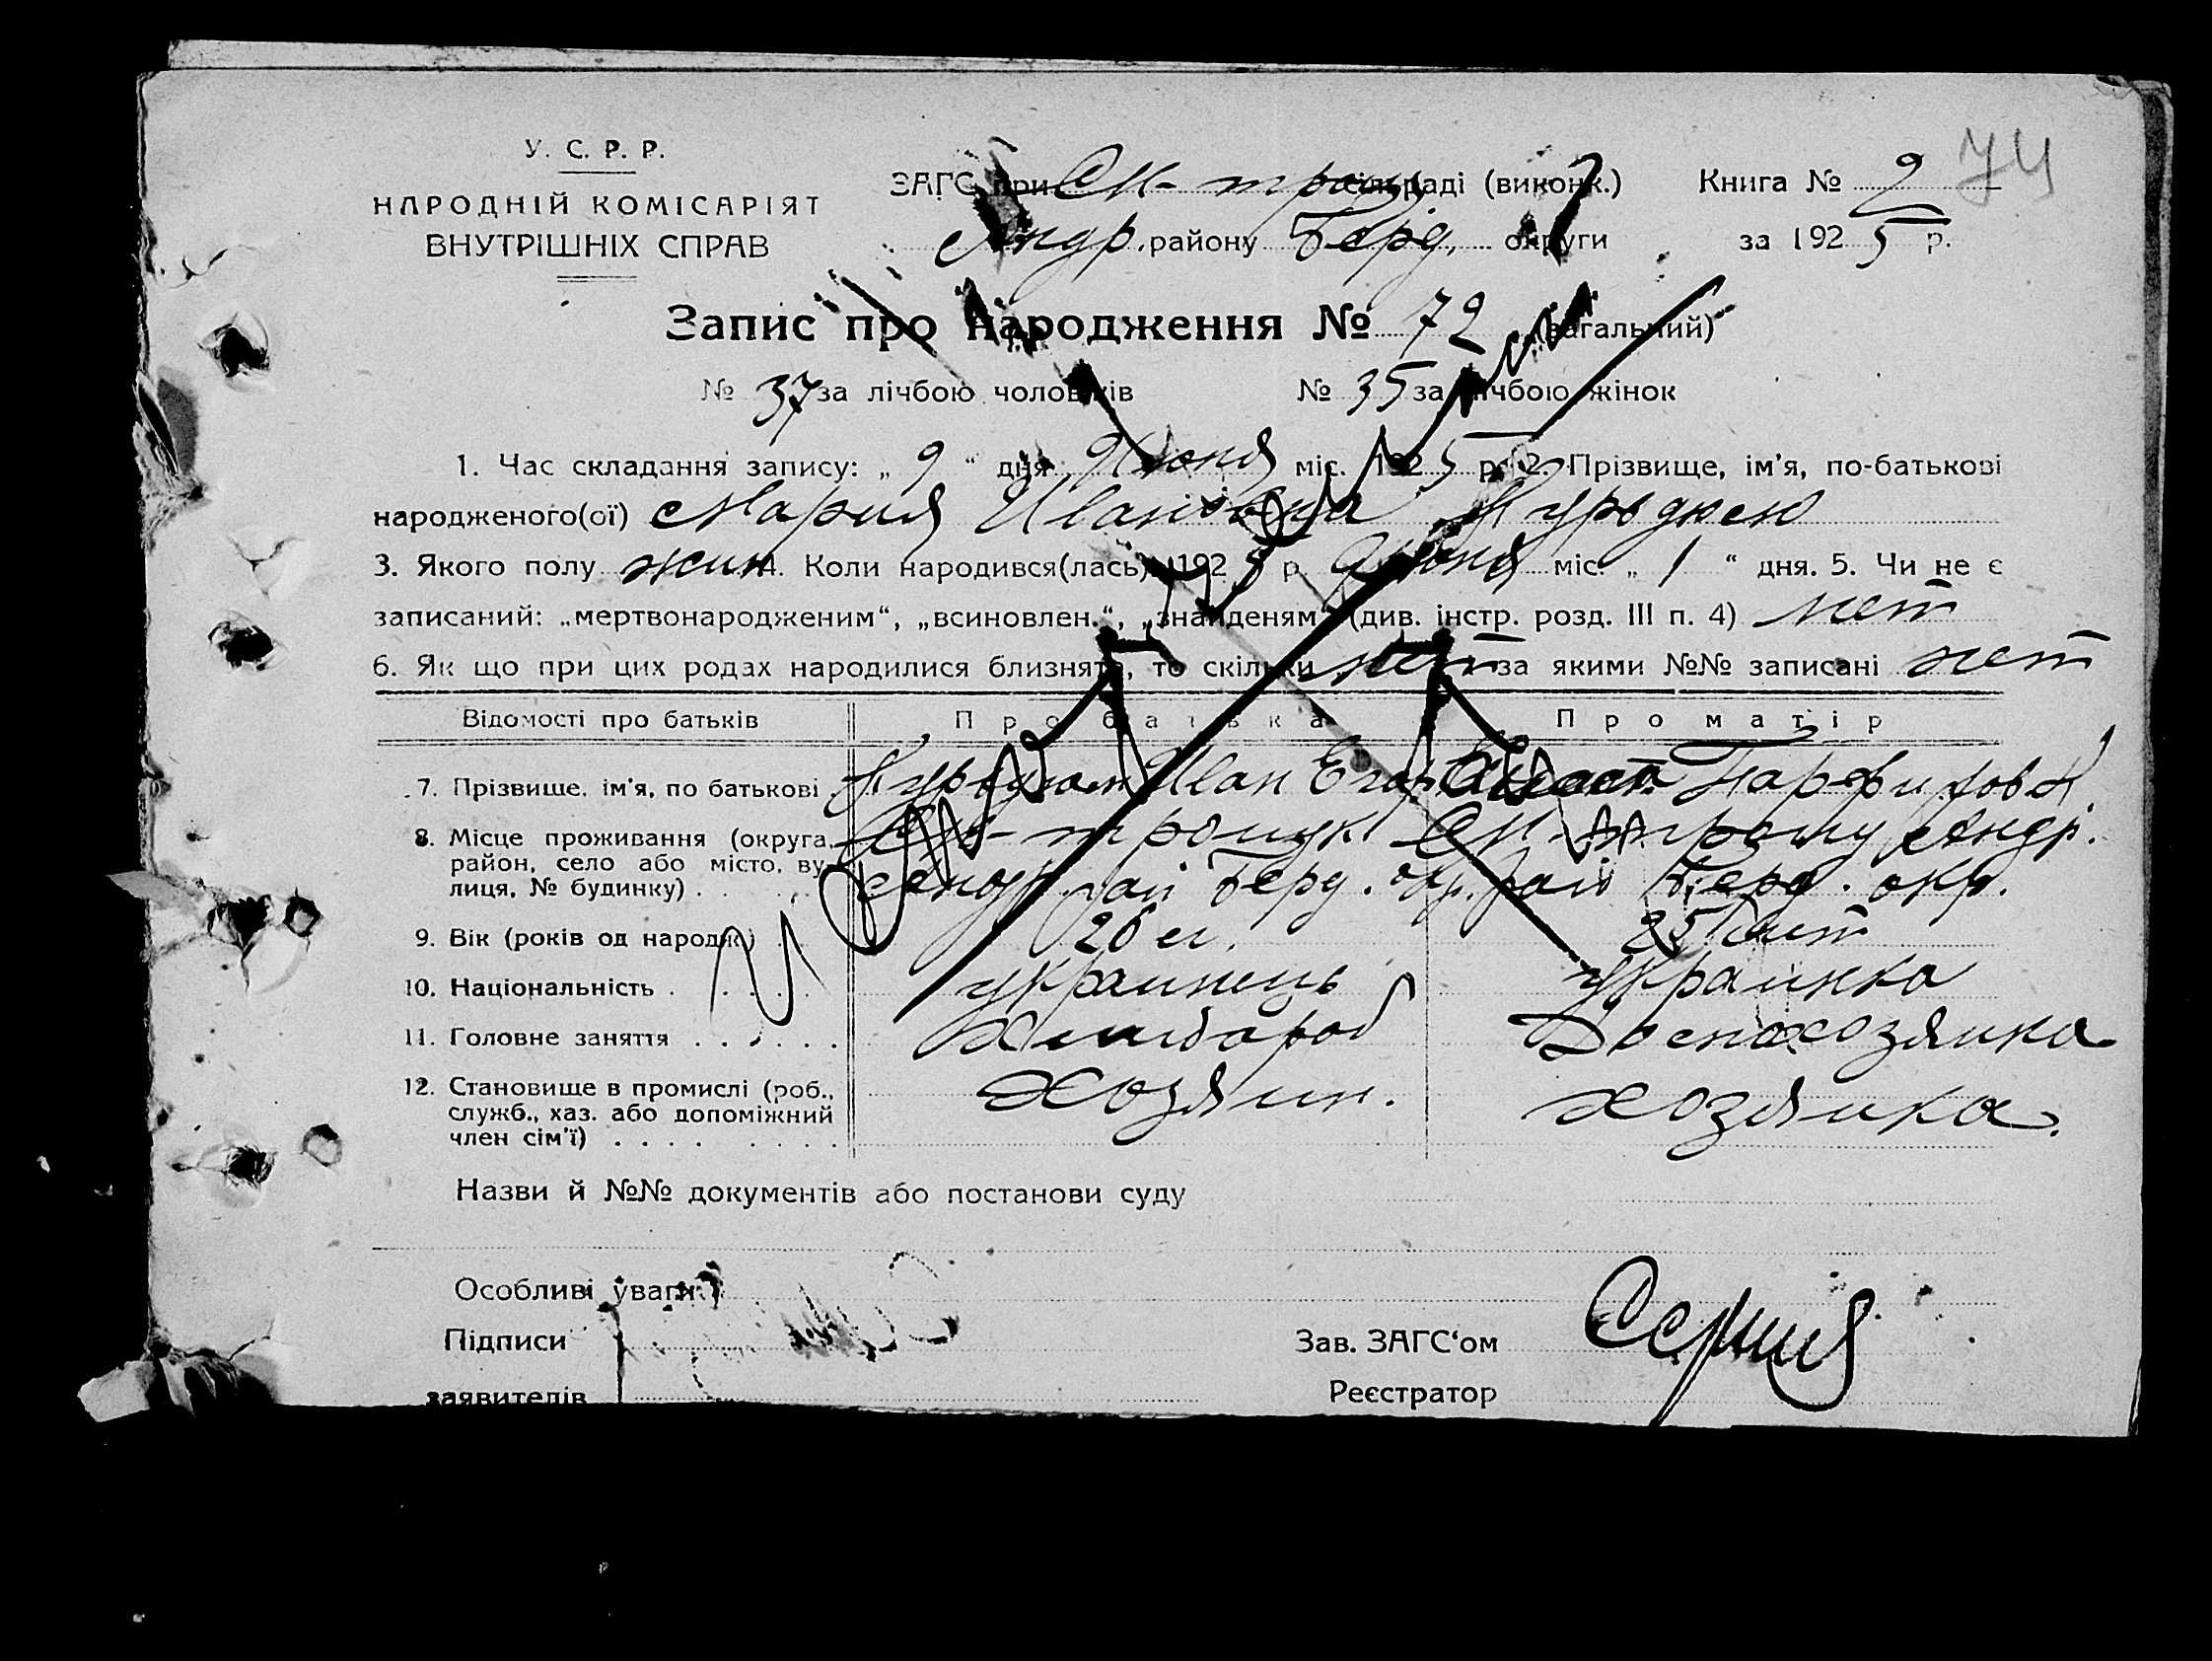 У. С. Р. Р.
НАРОДНІЙ КОМІСАРІЯТ
ВНУТРІШНІХ СПРАВ
74
ЗАГС при сільраді (виконк.) Книга № 2
Андр. району Берд. округи за 1925 р.
Запис про народження № 72 (загальний)
№ 37 за лічбою чоловіків № 35 за лічбою жінок
1. Час складання запису: „ 9 “ дня Июня міс. 1925 р. 2. Прізвище, ім’я, по-батькові
народженого(ої) Мария Ивановна
3. Якого полу жин 4. Коли народився(лась) 1925 р. Июня міс. „ 1 “ дня. 5. Чи не є
записаний: „мертвонародженим“, „всиновлен.“, „знайденям“ (див. інстр. розд. III п. 4) нет
6. Як що при цих родах народилися близнята, то скільки нет за якими №№ записані нет
Відомості про батьків Про батька Про матір
7. Прізвище, ім’я, по батькові Иван Егор.
8. Місце проживання (округа, район, село або місто, вулиця, № будинку) Андр. рай Берд. окр. Андр. рай Берд. окр.
9. Вік (років од народж.) 26 25 лет
10. Національність украинець украинка
11. Головне заняття Хлібороб
12. Становище в промислі (роб., служб., хаз. або допоміжний член сім’ї) Хозяин. хозяика.
Назви й №№ документів або постанови суду
Особливі уваги
Підписи Зав. ЗАГС‘ом
заявителів Реєстратор